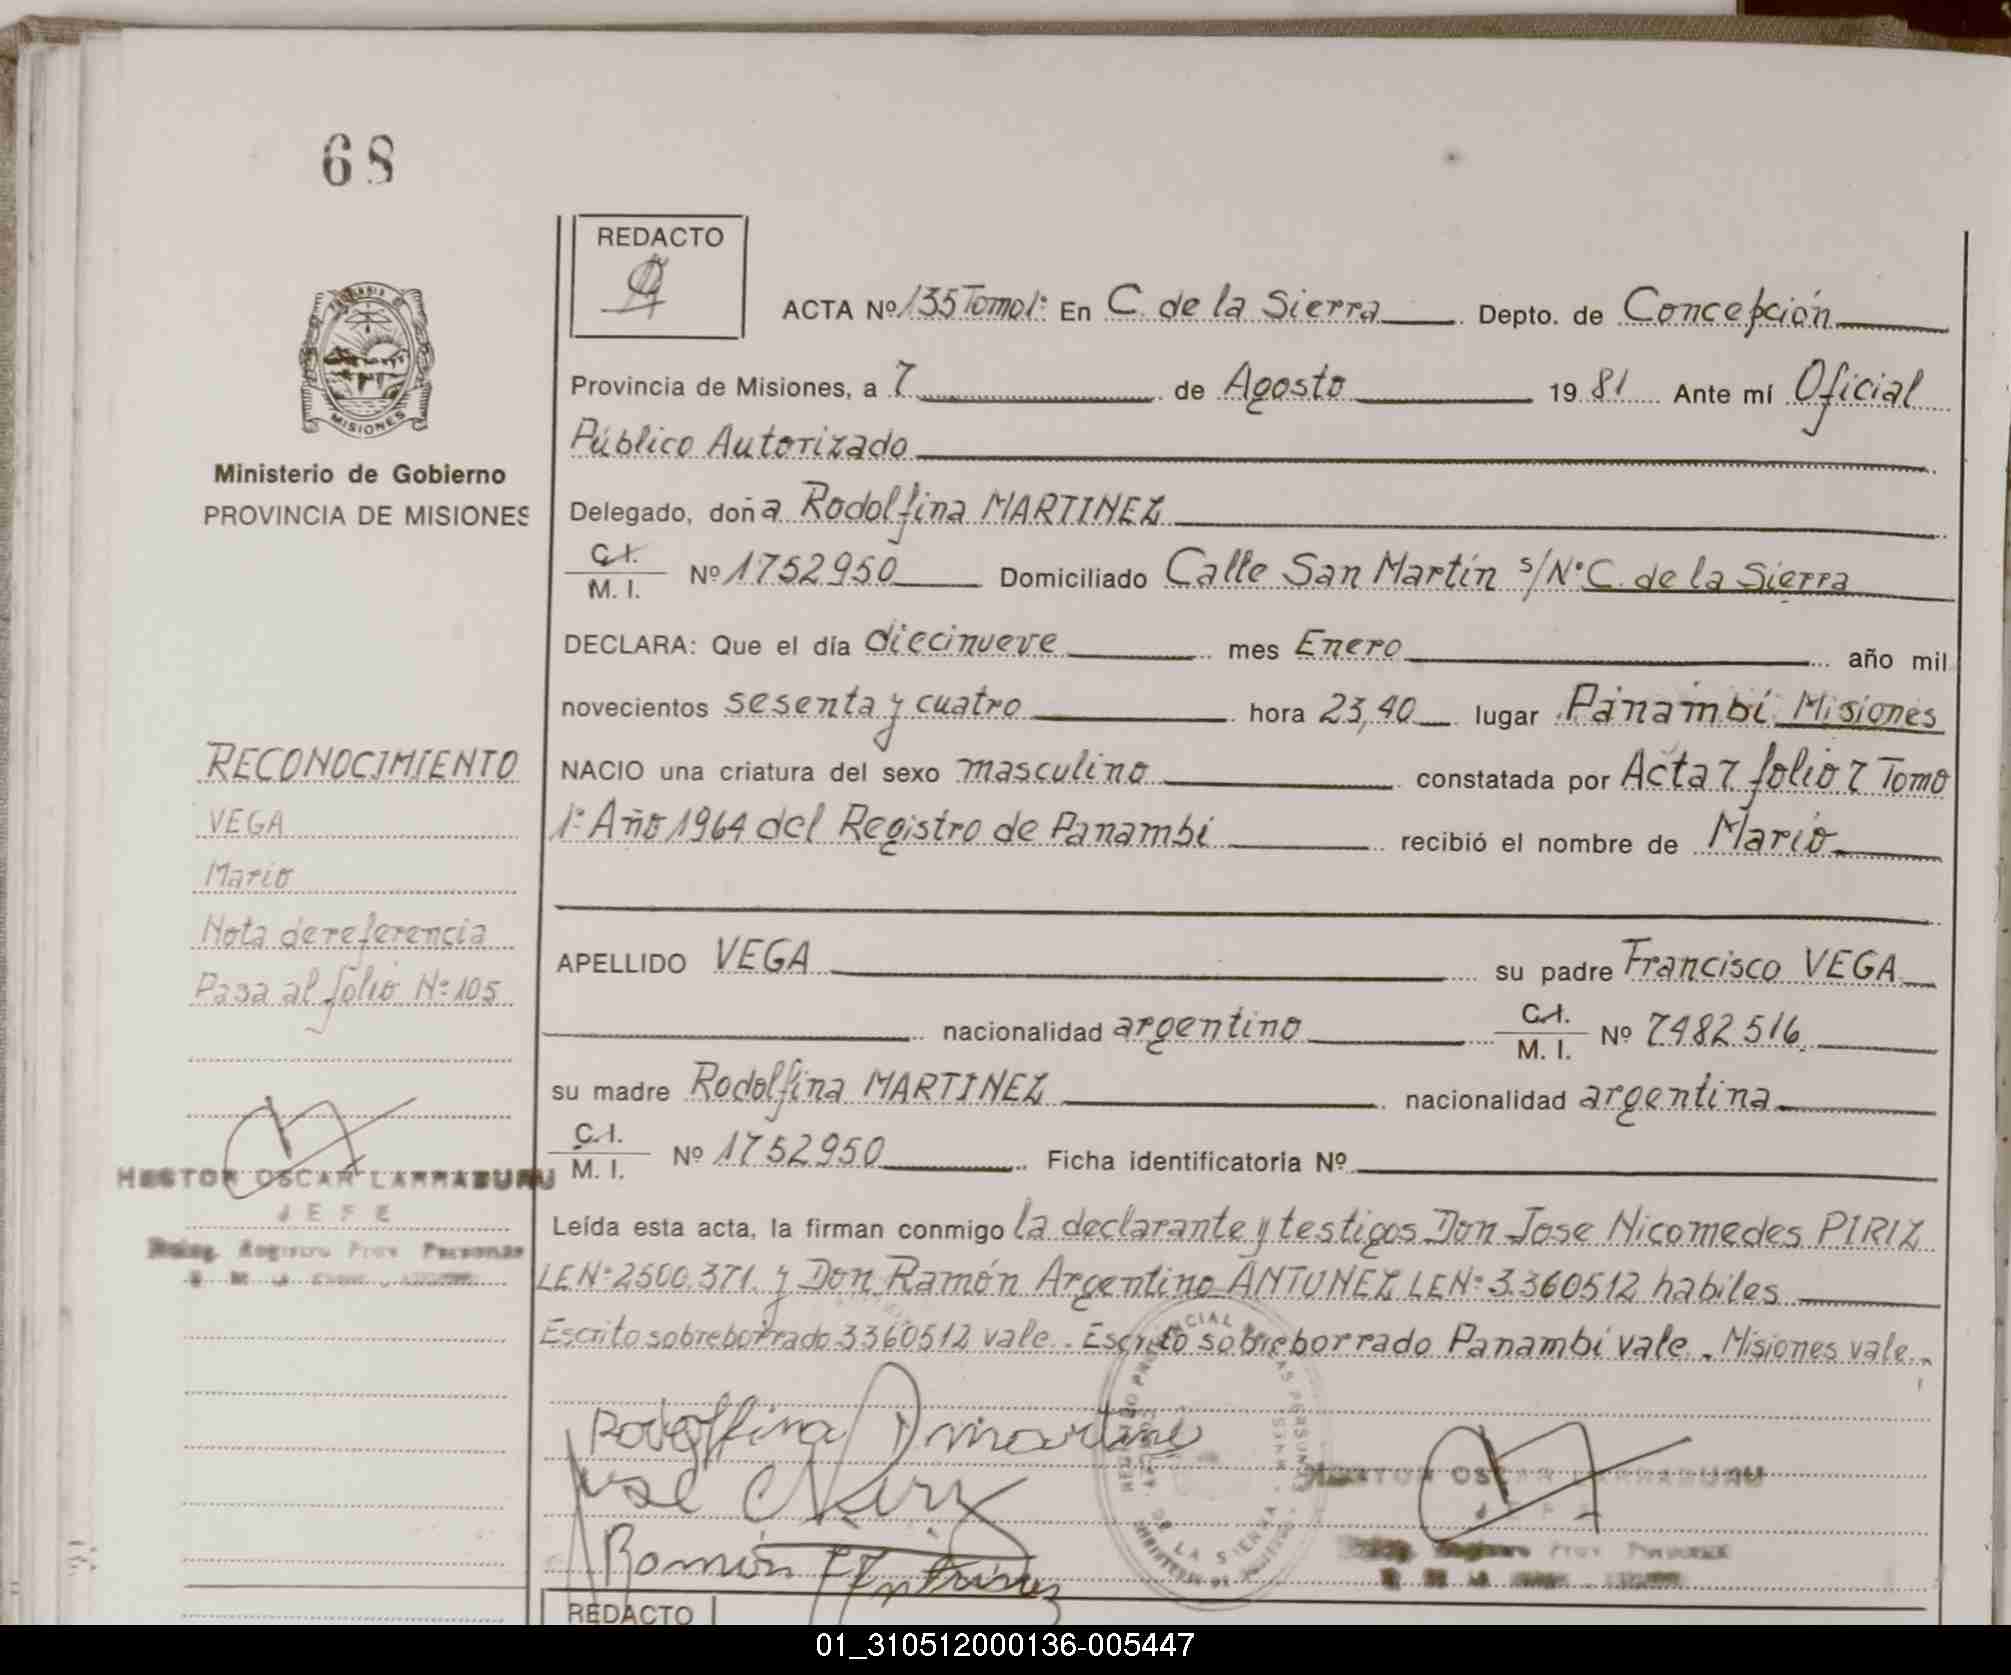 68
REDACTO
ACTA Nº 135 Tomo 1º En C. de la Sierra Depto. de Concepción
Provincia de Misiones, a 7 de Agosto 1981 Ante mí Oficial
Público Autorizado
Delegado, doña Rodolfina MARTINEZ
C.I.
M. I. Nº 1752950 Domiciliado Calle San Martín s/Nº C. de la Sierra
DECLARA: Que el día diecinueve mes Enero año mil
novecientos sesenta y cuatro hora 23,40 lugar Panambí Misiones
NACIO una criatura del sexo masculino constatada por Acta 7 folio 7 Tomo
1º Año 1964 del Registro de Panambí recibió el nombre de Mario
APELLIDO VEGA su padre Francisco VEGA
nacionalidad argentino C.I. M. I. Nº 7482516
su madre Rodolfina MARTINEZ nacionalidad argentina
C.I.
M. I. Nº 1752950 Ficha identificatoria Nº
Leída esta acta, la firman conmigo la declarante y testigos Don Jose Nicomedes PIRIZ
LE Nº 2500.371. y Don Ramón Argentino ANTUNEZ LE Nº 3.360512 habiles
Escrito sobreborrado 3360512 vale. Escrito sobreborrado Panambí vale. Misiones vale.
Rodolfina
Ramón
HECTOR OSCAR LARRABURU
JEFE
REDACTO
MISIONES
Ministerio de Gobierno
PROVINCIA DE MISIONES
RECONOCIMIENTO
VEGA
Mario
Nota de referencia
Pasa al folio Nº 105
HECTOR OSCAR LARRABURU
JEFE
Deleg. Registro Prov. Personas
DE LA SIERRA
01_310512000136-005447